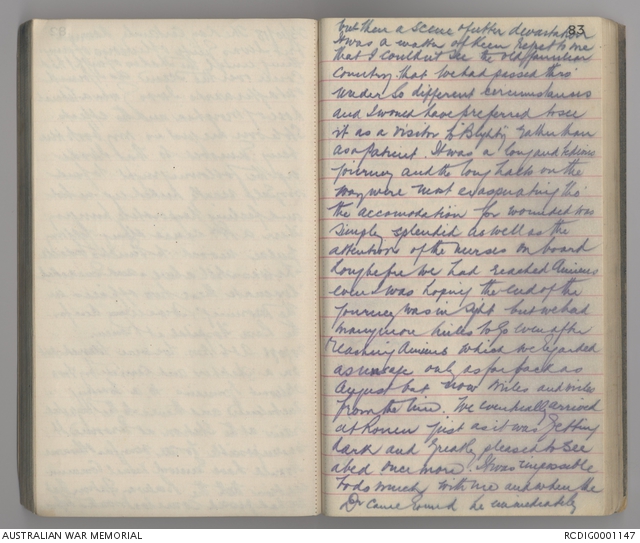 83
but then a scene of utter devastation
It was a matter of keen regret to me
that I couldn't see the old familiar
country that we had passed thro'
under so different circumstances
and I would have preferred to see
it as a visitor to Blighty rather than
as a patient. It was a long and tedious
journey and the long halts on the
way were most exasperating tho'
the accomodation for wounded was
simply splendid as well as the
attention of the nurses on board
Long before we had reached Amiens
even I was hoping the end of the
journey was in sight but we had
many more miles to go even after
reaching Amiens which we regarded
as only as far back as
August but now miles and miles
from the line. We eventually arrived
at Rouen just as it was getting
dark and greatly pleased to see
a bed once more. It was impossible
to do much with me and when the
Dr came round he immediately
AUSTRALIAN WAR MEMORIAL
RCDIG0001147